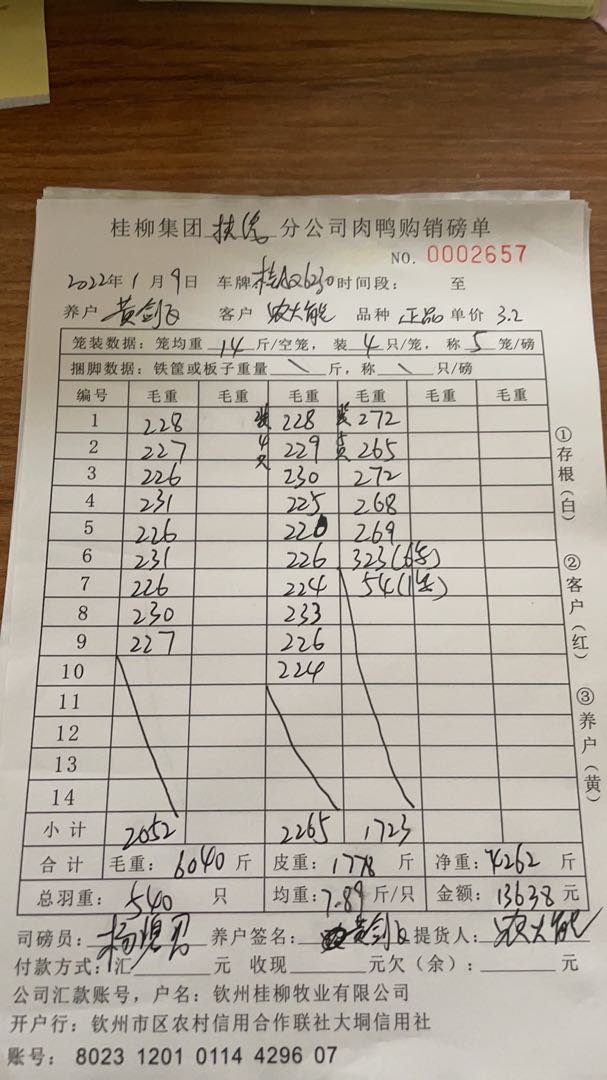 桂柳集团 扶绥 分公司肉鸭购销磅单
NO. 0002657
2022年 1 月 9 日 车牌 桂AQ6230 时间段: 至
养户 黄剑 客户 农大能 品种 正品 单价 3.2
笼装数据:笼均重 14 斤/空笼,装 4 只/笼,称 5 笼/磅
捆脚数据:铁筐或板子重量 \ 斤,称 \ 只/磅
编号 毛重 毛重 毛重 毛重 毛重 毛重
1 228 装 228 装 272
2 227 4只 229 5只 265
3 226 230 272
4 231 225 268
5 226 220 269
6 231 226 323(6笼)
7 226 224 54(1笼)
8 230 233
9 227 226
10 224
11
12
13
14
小计 2052 2265 1723
合计 毛重: 6040 斤 皮重: 1778 斤 净重: 4262 斤
总羽重: 540 只 均重: 7.89 斤/只 金额: 13638 元
司磅员: 杨 养户签名: 黄剑 提货人: 农大能
付款方式:汇 元 收现 元欠(余): 元
公司汇款账号,户名:钦州桂柳牧业有限公司
开户行:钦州市区农村信用合作联社大垌信用社
账号: 8023 1201 0114 4296 07
①存根(白)
②客户(红)
③养户(黄)